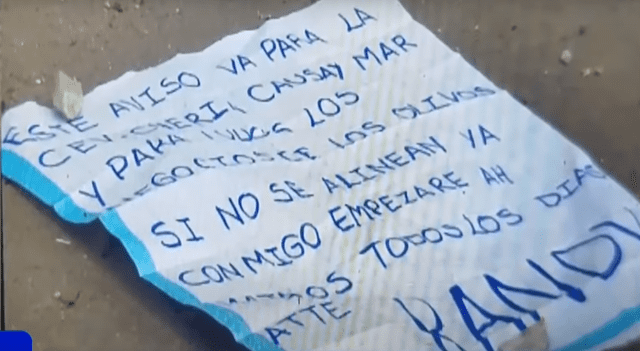 ESTE AVISO VA PARA LA
CEVICHERIA CAUSAY MAR
Y PARA TODOS LOS
NEGOCIOS DE LOS OLIVOS
SI NO SE ALINEAN YA
CONMIGO EMPEZARE AH
TODOS LOS DIAS
ATTE